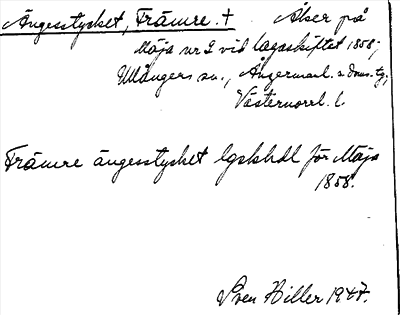 Ängesstycket, Främre. † Åker på
Mäja nr 2 vid lagaskiftet 1858;
Ullångers sn., Ångermanl. s. doms. tg,
Västernorrl. l.
Främre ängesstycket lgskhdl för Mäja
1858.
Sven Hiller 1947.